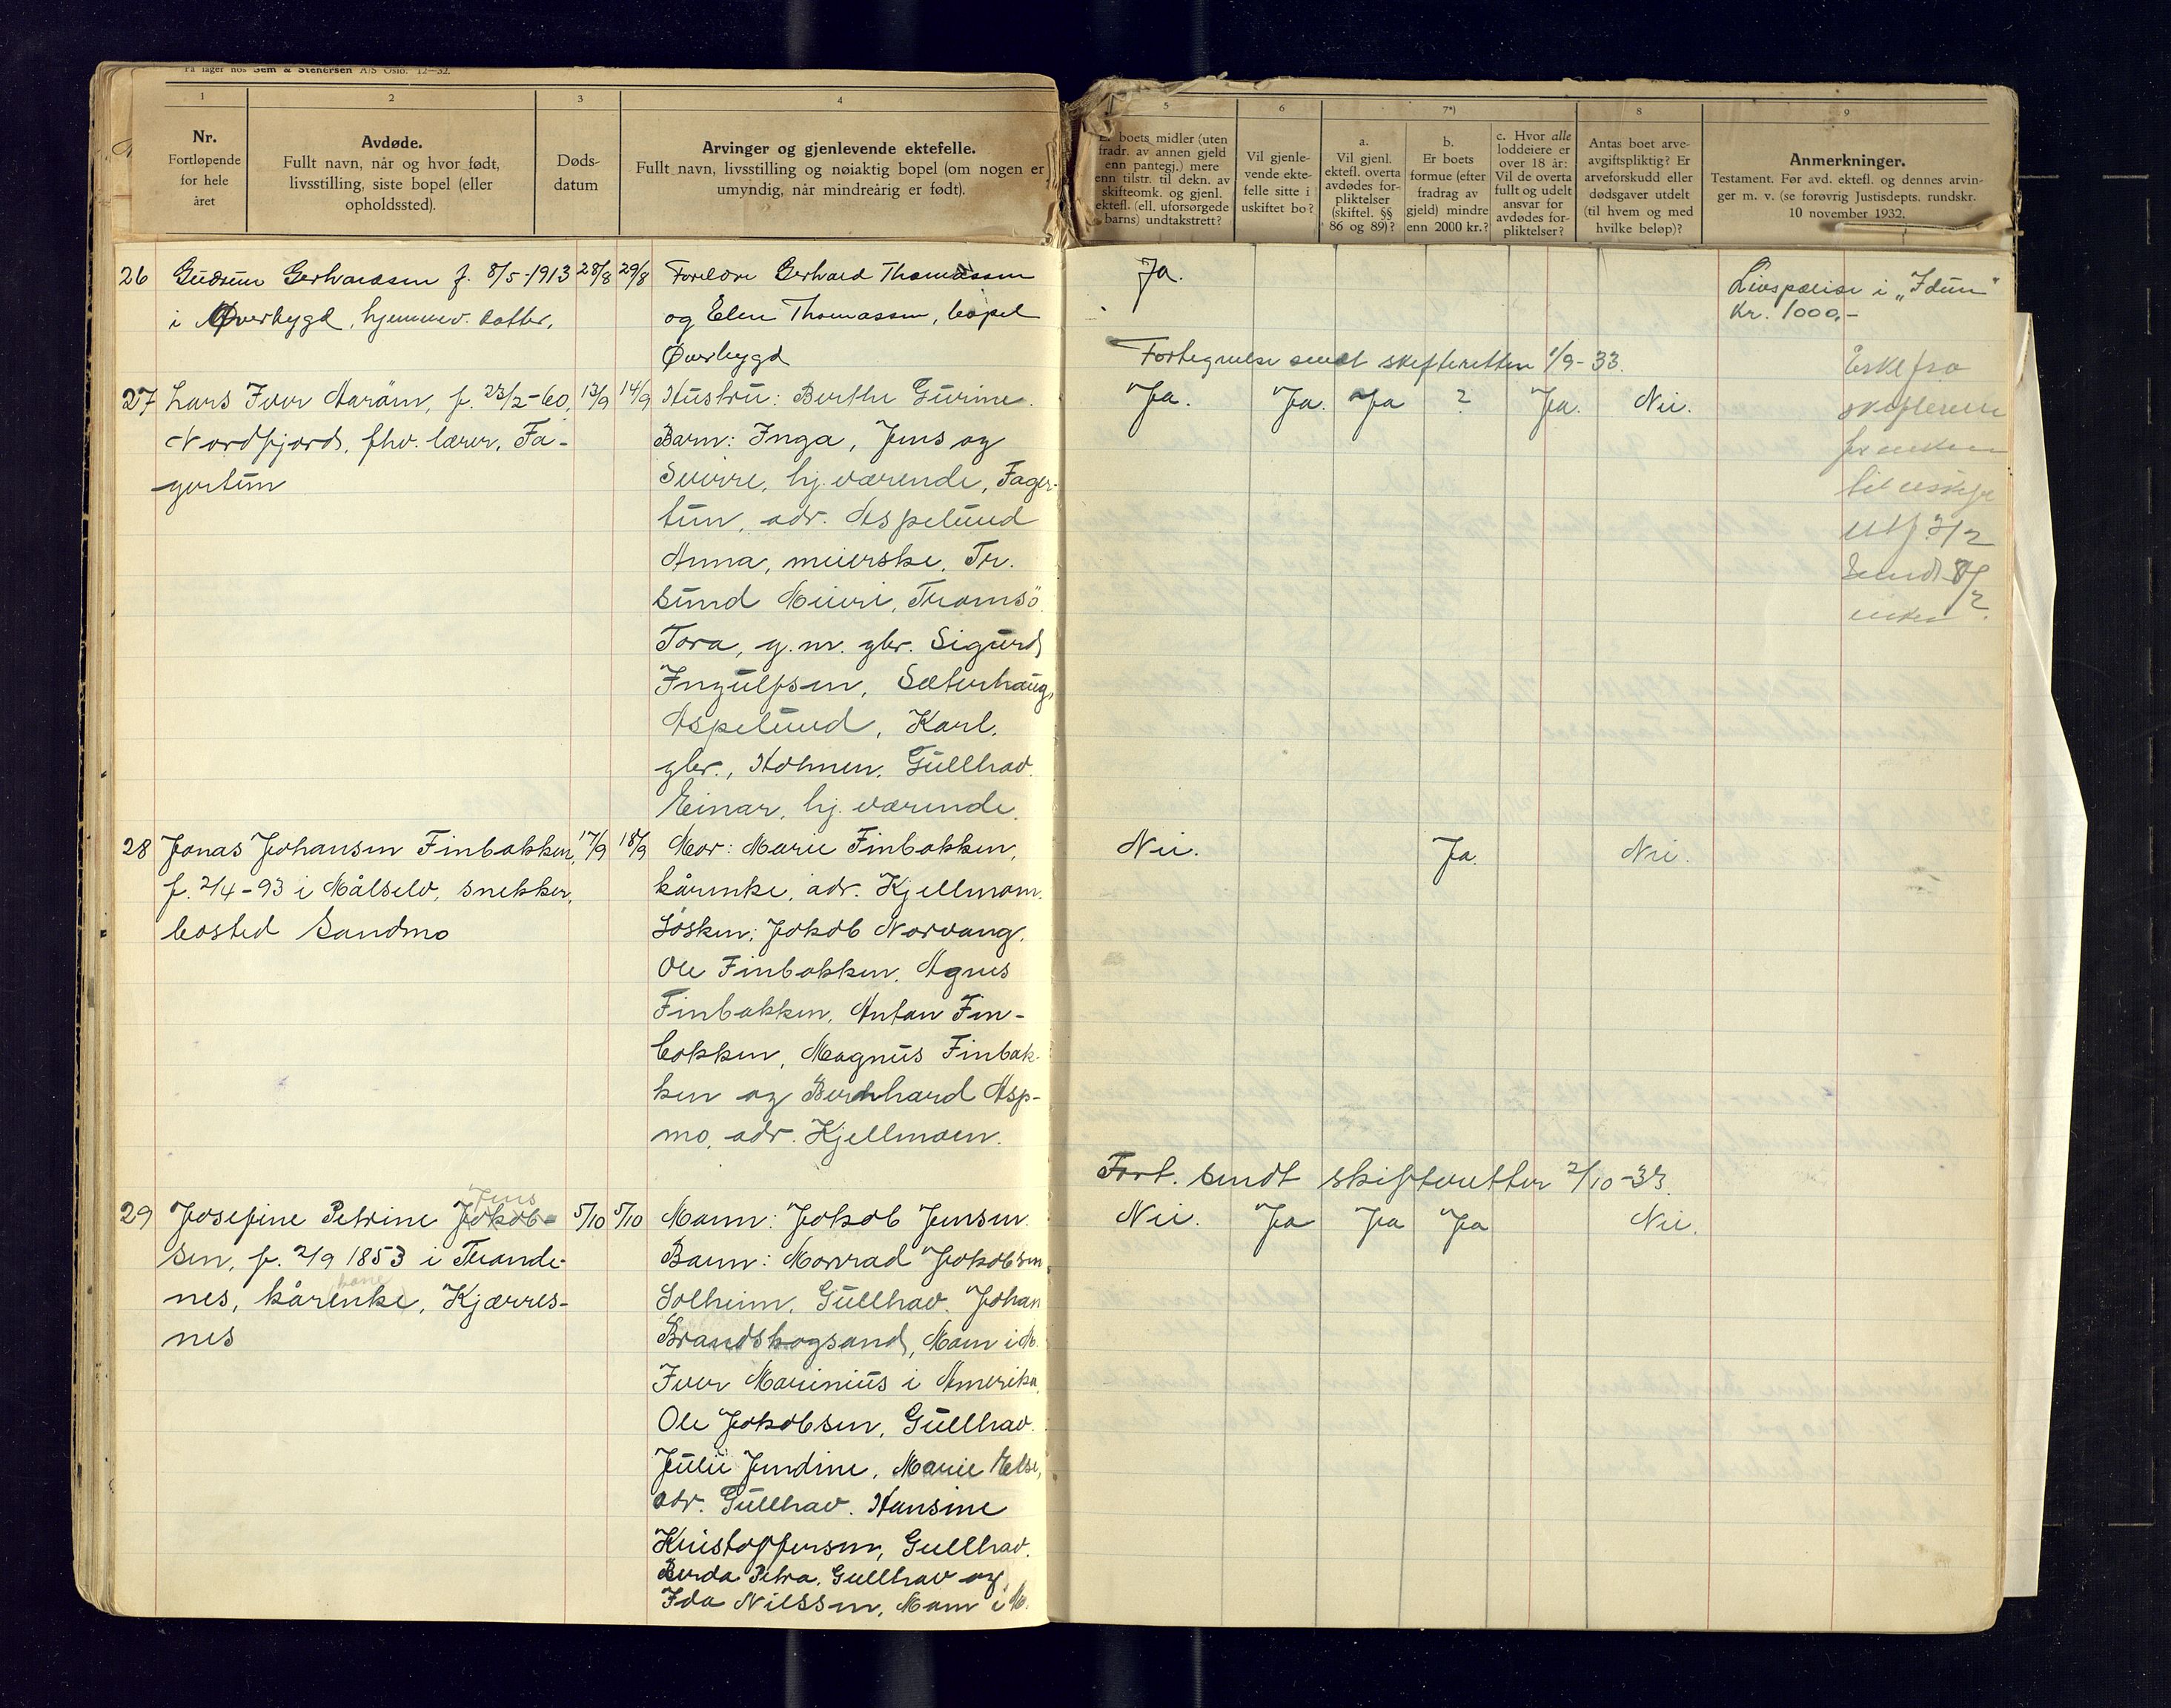 På lager hos Sem & Stenersen A/S Oslo. 12—32.
1
2
3
4
Nr.
Fortløpende
for hele
året
Avdøde.
Fullt navn, når og hvor født,
livsstilling, siste bopel (eller
opholdssted).
Døds-
datum
Arvinger og gjenlevende ektefelle.
Fullt navn, livsstilling og nøiaktig bopel (om nogen er
umyndig, når mindreårig er født).
5
6
7*)
8
9
Er boets midler (uten
fradr. av annen gjeld
enn pantegj.) mere
enn tilstr. til dekn. av
skifteomk. og gjenl.
ektefl. (ell. uforsørgede
barns) undtakstrett?
Vil gjenle-
vende ekte-
felle sitte i
uskiftet bo?
a.
Vil gjenl.
ektefl. overta
avdødes for-
pliktelser
(skiftel. §§
86 og 89)?
b.
Er boets
formue (efter
fradrag av
gjeld) mindre
enn 2000 kr.?
c. Hvor alle
loddeiere er
over 18 år:
Vil de overta
fullt og udelt
ansvar for
avdødes for-
pliktelser?
Antas boet arve-
avgiftspliktig? Er
arveforskudd eller
dødsgaver utdelt
(til hvem og med
hvilke beløp)?
Anmerkninger.
Testament. Før avd. ektefl. og dennes arvin-
ger m. v. (se forøvrig Justisdepts. rundskr.
10 november 1932.
26 Gudrun Gerhardsen f. 8/5-1913 28/8 29/8
i Øverbygd, hjemmev. datter,
Foreldre Gerhard Thomassen
og Elen Thomassen, bopel
Øverbygd
Ja.
Livspolise i „Idun"
Kr. 1000,-
Fortegnelse sendt skifteretten 1/9-33.
27 Lars Iver Aarám, f. 23/2-60, 13/9 14/9
Nordfjord, fhv. lærer, Fa-
gertun
Hustru: Berthe Gurine.
Barn: Inga, Jens og
Sverre, hj. værende, Fager-
tun, adr. Aspelund
Anna, meierske, Tr.
sund Meieri, Tromsö.
Tora, g. m. gbr. Sigurd
Ingulfsen, Sæterhaug,
Aspelund, Karl,
gbr., Holmen, Gullhav.
Einar, hj. værende.
Ja. Ja. Ja ? Ja. Nei.
fra
skifterette
utf. 3/2
Sendt 8/2
28 Jonas Johansen Finbakken, 17/9 18/9
f. 2/4-93 i Målselv, snekker,
bosted Sandmo
Mor: Marie Finbakken,
kårenke, adr. Kjellmoen.
Søsken: Jakob Norvang,
Ole Finbakken, Agnes
Finbakken, Anton Fin-
bakken, Magnus Finbak-
ken og Bernhard Asp-
mo, adr. Kjellmoen.
Nei. Ja. Nei.
Fort. sendt skifteretten 2/10-33.
Jens
29 Josefine Petrine Jakob- 5/10 5/10
sen, f. 2/9 1853 i Trande-
kone
nes, kårenke, Kjærres-
nes
Mann: Jakob Jensen.
Barn: Monrad Jakobsen,
Solheim, Gullhav. Johan
Brandskogsand, Moen i M.
Iver Marinius i Amerika,
Ole Jakobsen, Gullhav.
Julie Jendine, Marie Else,
adr. Gullhav. Hansine
Kristoffersen, Gullhav.
Berda Petra, Gullhav og
Ida Nilssen, Moen i M.
Nei. Ja Ja Ja Nei.